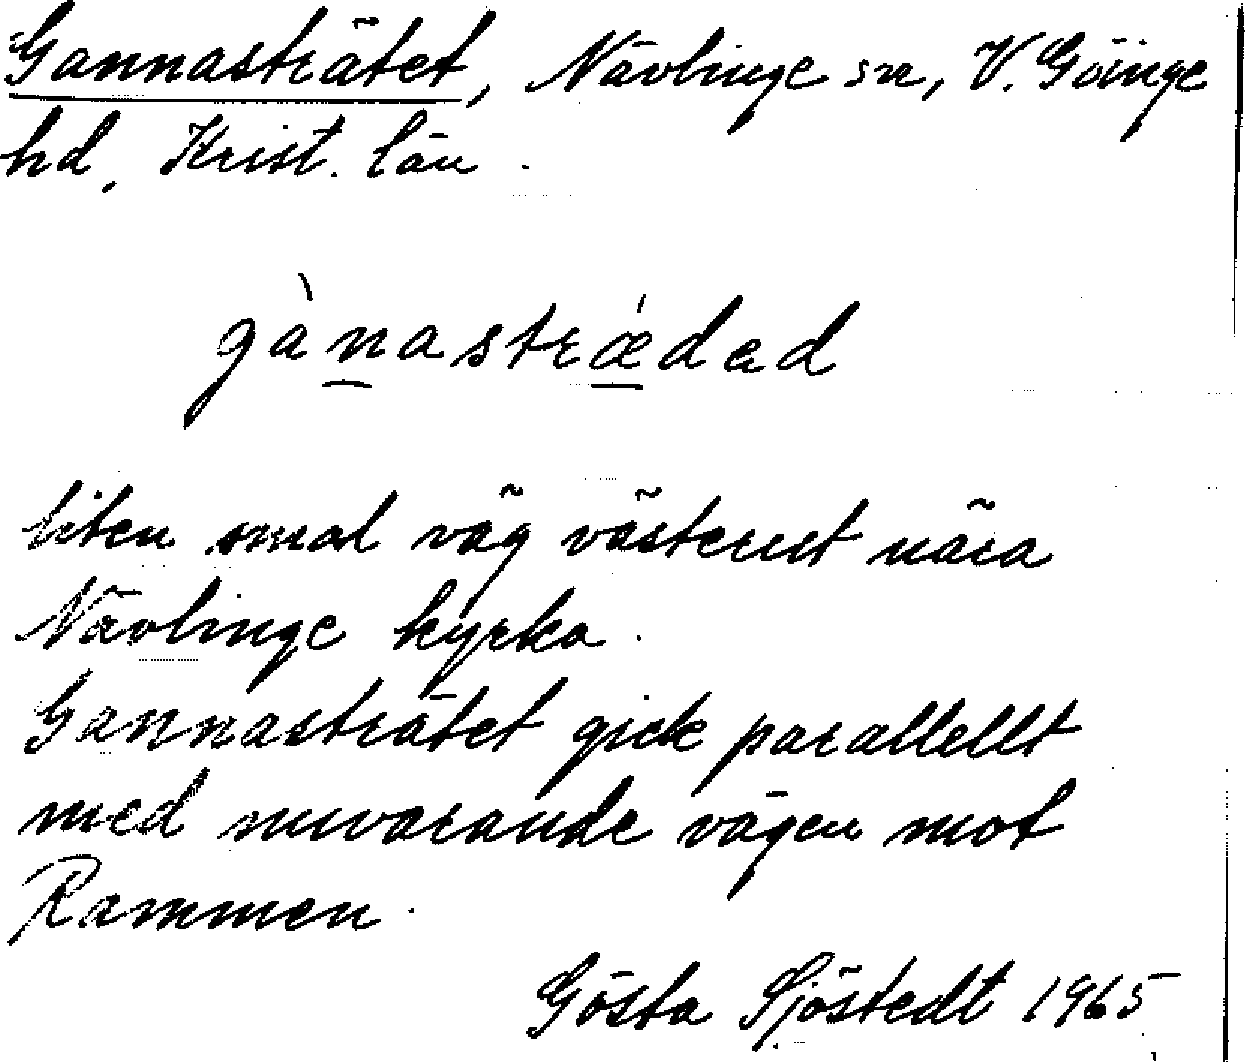 Gannasträtet, Nävlinge sn, V. Göinge
hd, Krist. län.
gànastrǽdad
liten smal väg västerut nära
Nävlinge kyrka.
Gannasträtet gick parallellt
med nuvarande vägen mot
Rammen.
Gösta Sjöstedt 1965